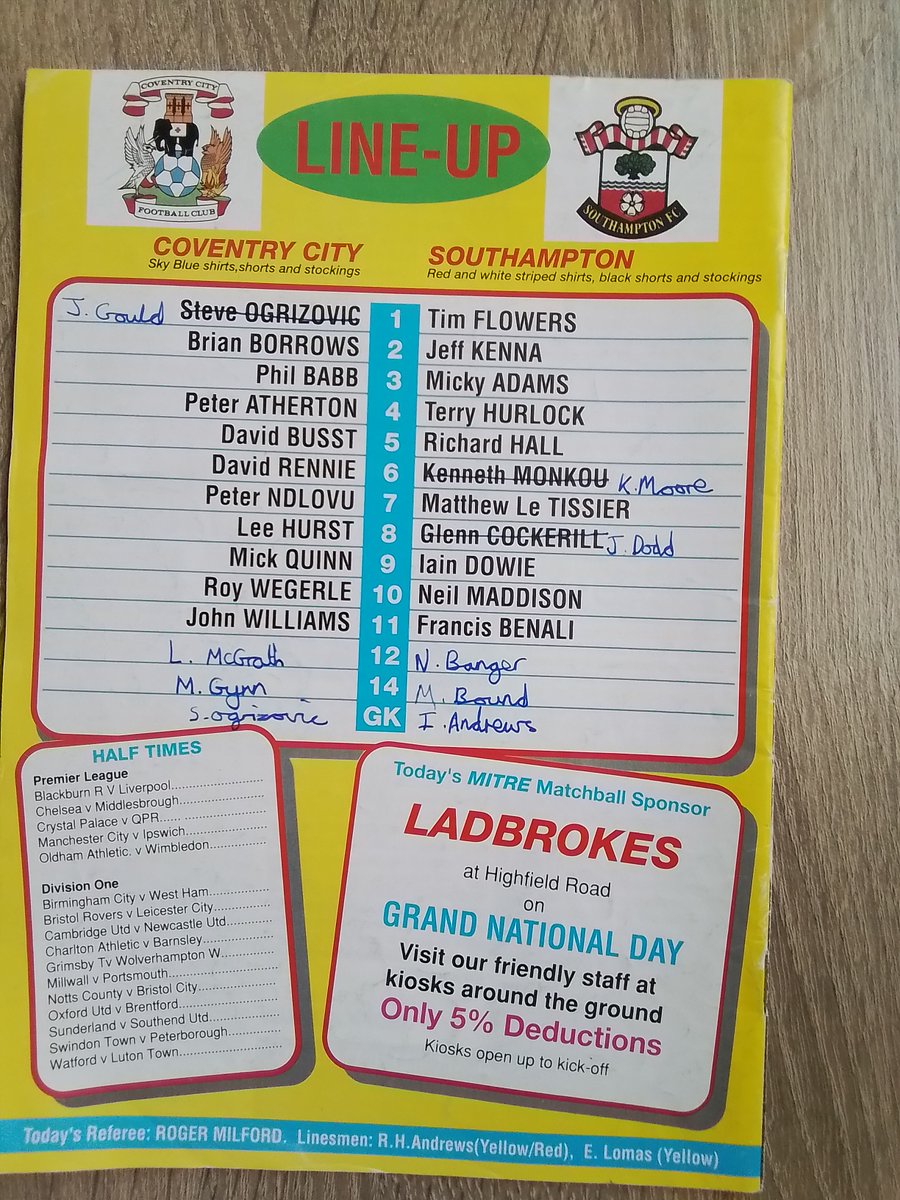 COVENTRY CITY
FOOTBALL CLUB
LINE-UP
SOUTHAMPTON FC
COVENTRY CITY
Sky Blue shirts,shorts and stockings
SOUTHAMPTON
Red and white striped shirts, black shorts and stockings
J. Gould Steve OGRIZOVIC 1 Tim FLOWERS
Brian BORROWS 2 Jeff KENNA
Phil BABB 3 Micky ADAMS
Peter ATHERTON 4 Terry HURLOCK
David BUSST 5 Richard HALL
David RENNIE 6 Kenneth MONKOU K. Moore
Peter NDLOVU 7 Matthew Le TISSIER
Lee HURST 8 Glenn COCKERILL J. Dodd
Mick QUINN 9 Iain DOWIE
Roy WEGERLE 10 Neil MADDISON
John WILLIAMS 11 Francis BENALI
L. McGrath 12 N. Banger
M. Gynn 14 M. Bound
S. ogrizovic GK I. Andrews
HALF TIMES
Premier League
Blackburn R V Liverpool
Chelsea v Middlesbrough
Crystal Palace v QPR
Manchester City v Ipswich
Oldham Athletic. v Wimbledon
Division One
Birmingham City v West Ham
Bristol Rovers v Leicester City
Cambridge Utd v Newcastle Utd
Charlton Athletic v Barnsley
Grimsby Tv Wolverhampton W
Millwall v Portsmouth
Notts County v Bristol City
Oxford Utd v Brentford
Sunderland v Southend Utd
Swindon Town v Peterborough
Watford v Luton Town
Today's MITRE Matchball Sponsor
LADBROKES
at Highfield Road
on
GRAND NATIONAL DAY
Visit our friendly staff at
kiosks around the ground
Only 5% Deductions
Kiosks open up to kick-off
Today's Referee: ROGER MILFORD. Linesmen: R.H.Andrews(Yellow/Red), E. Lomas (Yellow)